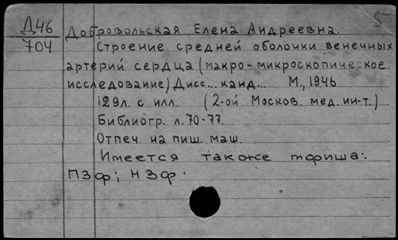 5
Д46
704
Добровольская Елена Андреевна
Строение средней оболочки венечных
артерий сердца (макро-микроскопическое
исследование) Дисс... канд... М., 1946
129л. с илл. (2-ой Москов. мед. ин-т.)
Библиогр. л.70-77.
Отпеч. на пиш. маш.
Имеется также тфиша:
ПЗф; НЗф.